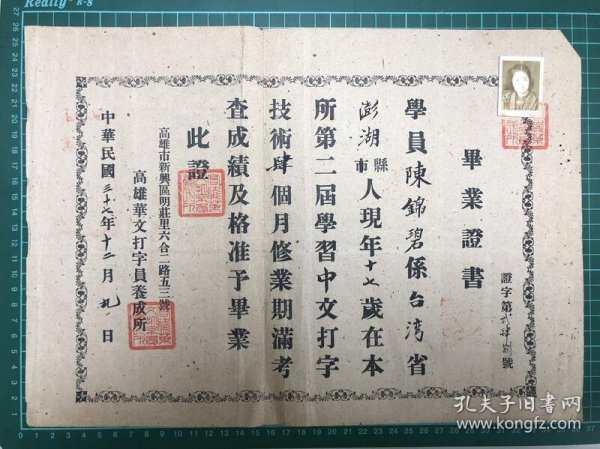 畢業證書
證字第弍肆捌號
學員陳錦碧係台湾省
澎湖縣市人現年十七歲在本
所第二屆學習中文打字
技術肆個月修業期滿考
查成績及格准予畢業
此證
高雄市新興區明莊里六合二路五三號
高雄華文打字員養成所
中華民國三十七年十二月九日
孔夫子旧书网
www.kongfz.com